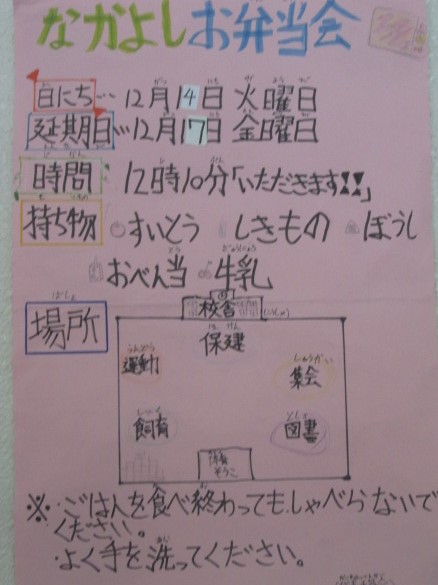 なかよしお弁当会
日にち…12月14日 火曜日
延期日…12月17日 金曜日
時間 12時10分「いただきます!!」
持ち物 すいとう しきもの ぼうし
おべん当 牛乳
場所
校舎
保建
運動
集会
飼育
図書
体育
そうこ
※・ごはんを食べ終わってもしゃべらないで
ください。
・よく手を洗ってください。